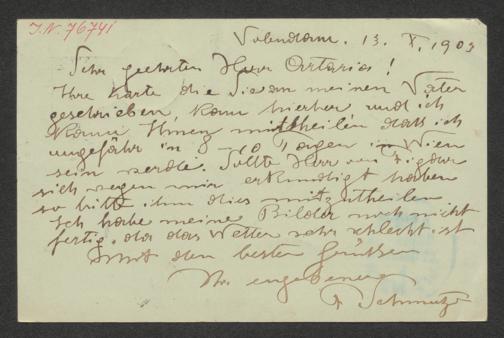 I.N. 76741
Volendam. 13. X. 1903
Sehr geehrter Herr Artaria!
Ihre Karte die Sie an meinen Vater
geschrieben, kam hierher und ich
kann Ihnen mittheilen dass ich
ungefähr in 8-10 Tagen in Wien
sein werde. Sollte Herr von
sich wegen mir erkundigt haben
so bitte ihm dies mitzutheilen
Ich habe meine Bilder noch nicht
fertig, da das Wetter sehr schlecht ist
Mit den besten Grüssen
Ihr ergebener
F Schmutzer